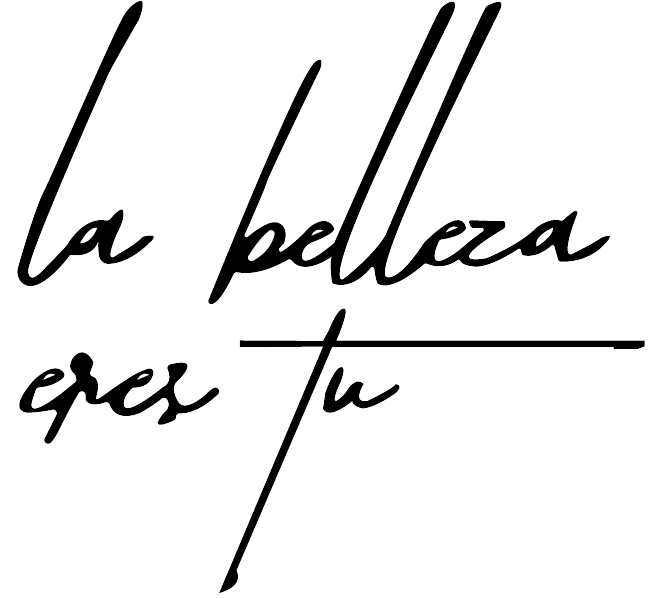 la belleza
eres tu